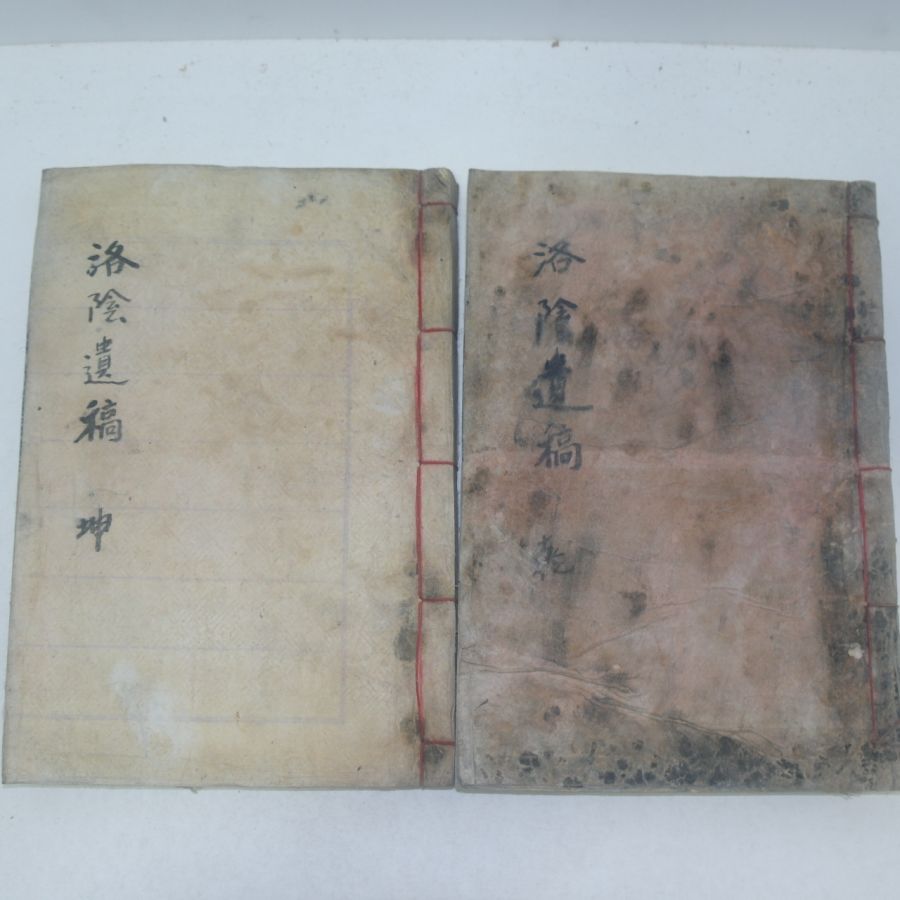 洛陰遺稿 坤
洛陰遺稿 乾